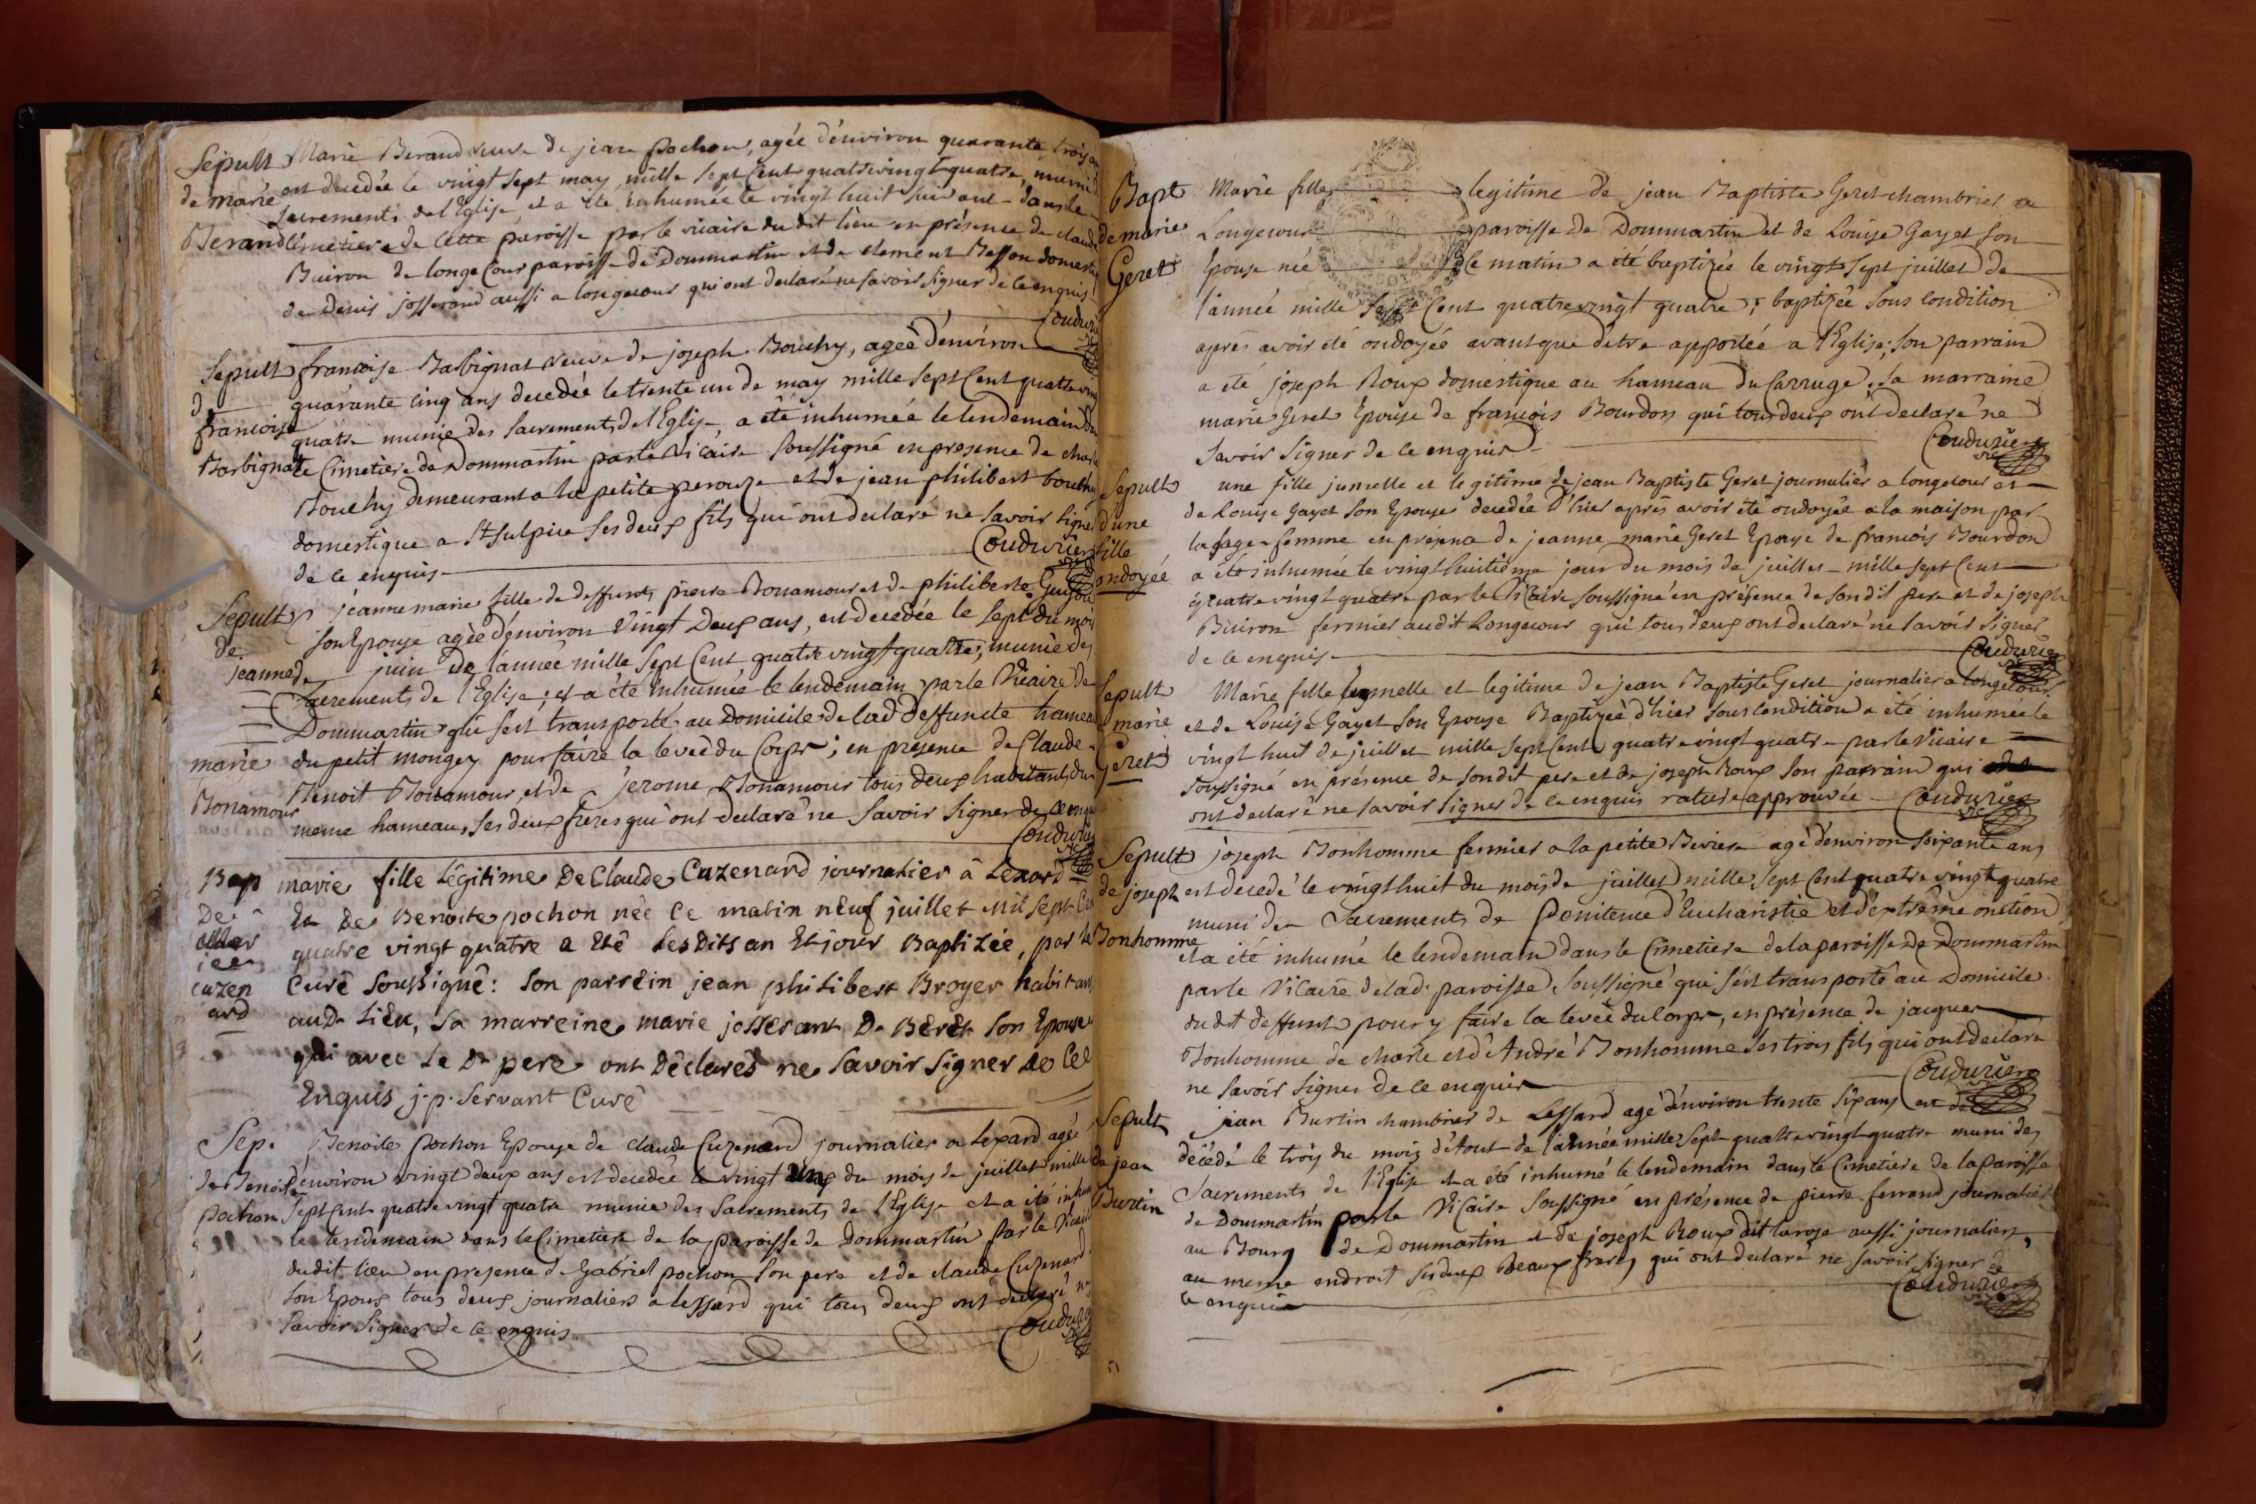 Sepult Marie Berand veuve de jean pochon, agée d'environ quarante trois an
de marie est decedée le vingt sept may mille sept Cent quatrevingt quatre, munie
sacrements de l'Eglise, et a été inhumée le vingt huit suivant dans le
Berand Cimetiere de Cette paroisse par le vicaire du dit lieu en présence de claude
Buiron de longecour paroisse de Dommartin et de clement Besson domest
de Denis josserand aussi a longecour qui ont declaré ne savoir signer de ce enquis
Couduri
Sepult francoise Barbignat veuve de joseph Bouchy, agée d'environ
d quarante cinq ans decedée le trente un de may mille sept Cent quatre ving
francoise quatre munie des sacrements de l'Eglise, a été inhumée le lendemain da
Barbignat le Cimetiere de Dommartin par le vicaire soussigné en presence de charle
Bouchy demeurant a la petite perouze et de jean philibert bouchy
domestique a St Sulpice ses deux fils qui ont declaré ne savoir signe
de ce enquis
Coudurier
Sepult jeanne marie fille de deffunts pierre Bonamour et de philiberte Guy
de son Epouse agée d'environ vingt Deux ans, est decedée le sept du moi
jeanne de juin de l'année mille sept Cent quatre vingt quatre, munie des
Sacrements de l'Eglise; et a été inhumée le lendemain par le Vicaire de
Dommartin qui s'est transporté au Domicile de lad deffuncte hameau
marie du petit mongey pour faire la levée du Corps; en presence de Claude
Benoit Bonamour, et de jerome Bonamour tous deux habitants du
Bonamour meme hameau, ses deux freres qui ont declaré ne savoir signer de ce enqu
Coudurier
Bap marie fille Légitime De Claude Cuzenard journalier à Lezard
De Et De Benoite pochon née ce matin neuf juillet mil sept C
quatre vingt quatre a Eté Lesdits an Et jour Baptizée, par le
cuzen Curé Soussigné: Son parrein jean philibert Broyer habitant
ard audt Lieu, Sa marreine marie josserant De Berét Son Epouse
qui avec Le Dt pere ont Déclarés ne Savoir signer de Ce
Enquis j.p. Servant Curé
Sep. Benoite pochon Epouse de claude Cuzenard journalier a Lezard agée
de Benoite d'environ vingt deux ans est decedée le vingt du mois de juillet mille
pochon Sept Cent quatre vingt quatre munie des Sacrements de l'Eglise et a été inhu
le lendemain dans le Cimetiere de la paroisse de Dommartin par le Vicaire
dudit lieu en presence de Gabriel pochon son pere et de claude Cuzenard
son Epoux tous deux journaliers a lessard qui tous deux ont declaré n
savoir signer de ce enquis
Coudurier
Bapt Marie fille legitime de jean Baptiste Geret chambrier a
de marie Longecour paroisse de Dommartin et de Louise Gayet son
Geret Epouse née ce matin a été baptizée le vingt sept juillet de
l'année mille sept Cent quatrevingt quatre; baptizée sous condition
après avoir été ondoyée avant que d'etre apportée a l'Eglise; son parrain
a été joseph Roux domestique au hameau du Carruge. sa marraine
marie Geret Epouse de francois Bourdon qui tous deux ont declaré ne
savoir signer de ce enquis
Coudurier
vic
Sepult une fille jumelle et legitime de jean Baptiste Geret journalier a longecour et
d'une de Louise Gayet son Epouse decedée d'hier après avoir été ondoyée a la maison par
fille la sage femme en presence de jeanne marie Geret Epouse de francois Bourdon
ondoyée a été inhumée le vingt huitième jour du mois de juillet mille sept Cent
quatre vingt quatre par le Vicaire soussigné en présence de son dit pere et de joseph
Buiron fermier audit Longecour qui tous deux ont declaré ne savoir signer
de ce enquis
Coudurier
Sepult Marie fille jumelle et legitime de jean Baptiste Geret journalier a longecour
marie et de Louise Gayet son Epouse Baptizée d'hier sous condition a été inhumée le
Geret vingt huit de juillet mille sept Cent quatre vingt quatre par le Vicaire
soussigné en présence de son dit pere et de joseph Roux son parrain qui
ont declaré ne savoir signer de ce enquis rature approuvée Coudurier
vic
Sepult joseph Bonhomme fermier a la petite Riviere agé d'environ soixante ans
de joseph est decedé le vingt huit du mois de juillet mille sept Cent quatre vingt quatre
muni des Sacrements de Penitence d'Eucharistie et d'extrême onction
Bonhomme et a été inhumé le lendemain dans le Cimetiere de la paroisse De Dommartin
par le Vicaire de lad. paroisse Soussigné qui s'est transporté au Domicile
du dit deffunt pour y faire la levée du Corps, en présence de jacques
Bonhomme de charle et d'André Bonhomme ses trois fils qui ont declaré
ne savoir signer de ce enquis
Coudurier
Sepult jean Burtin chambrier de Lessard agé d'environ trente six ans est de
de jean décédé le trois du mois d'Aout de l'année mille sept quatre vingt quatre muni des
Burtin Sacrements de l'Eglise et a été inhumé le lendemain dans le Cimetiere de la paroisse
de Dommartin par le Vicaire soussigné en présence de pierre ferrand journalier
au Bourg de Dommartin et de joseph Roux dit larose aussi journalier,
au meme endroit ses deux Beaux freres qui ont declaré ne savoir signer de
ce enquis
Coudurier